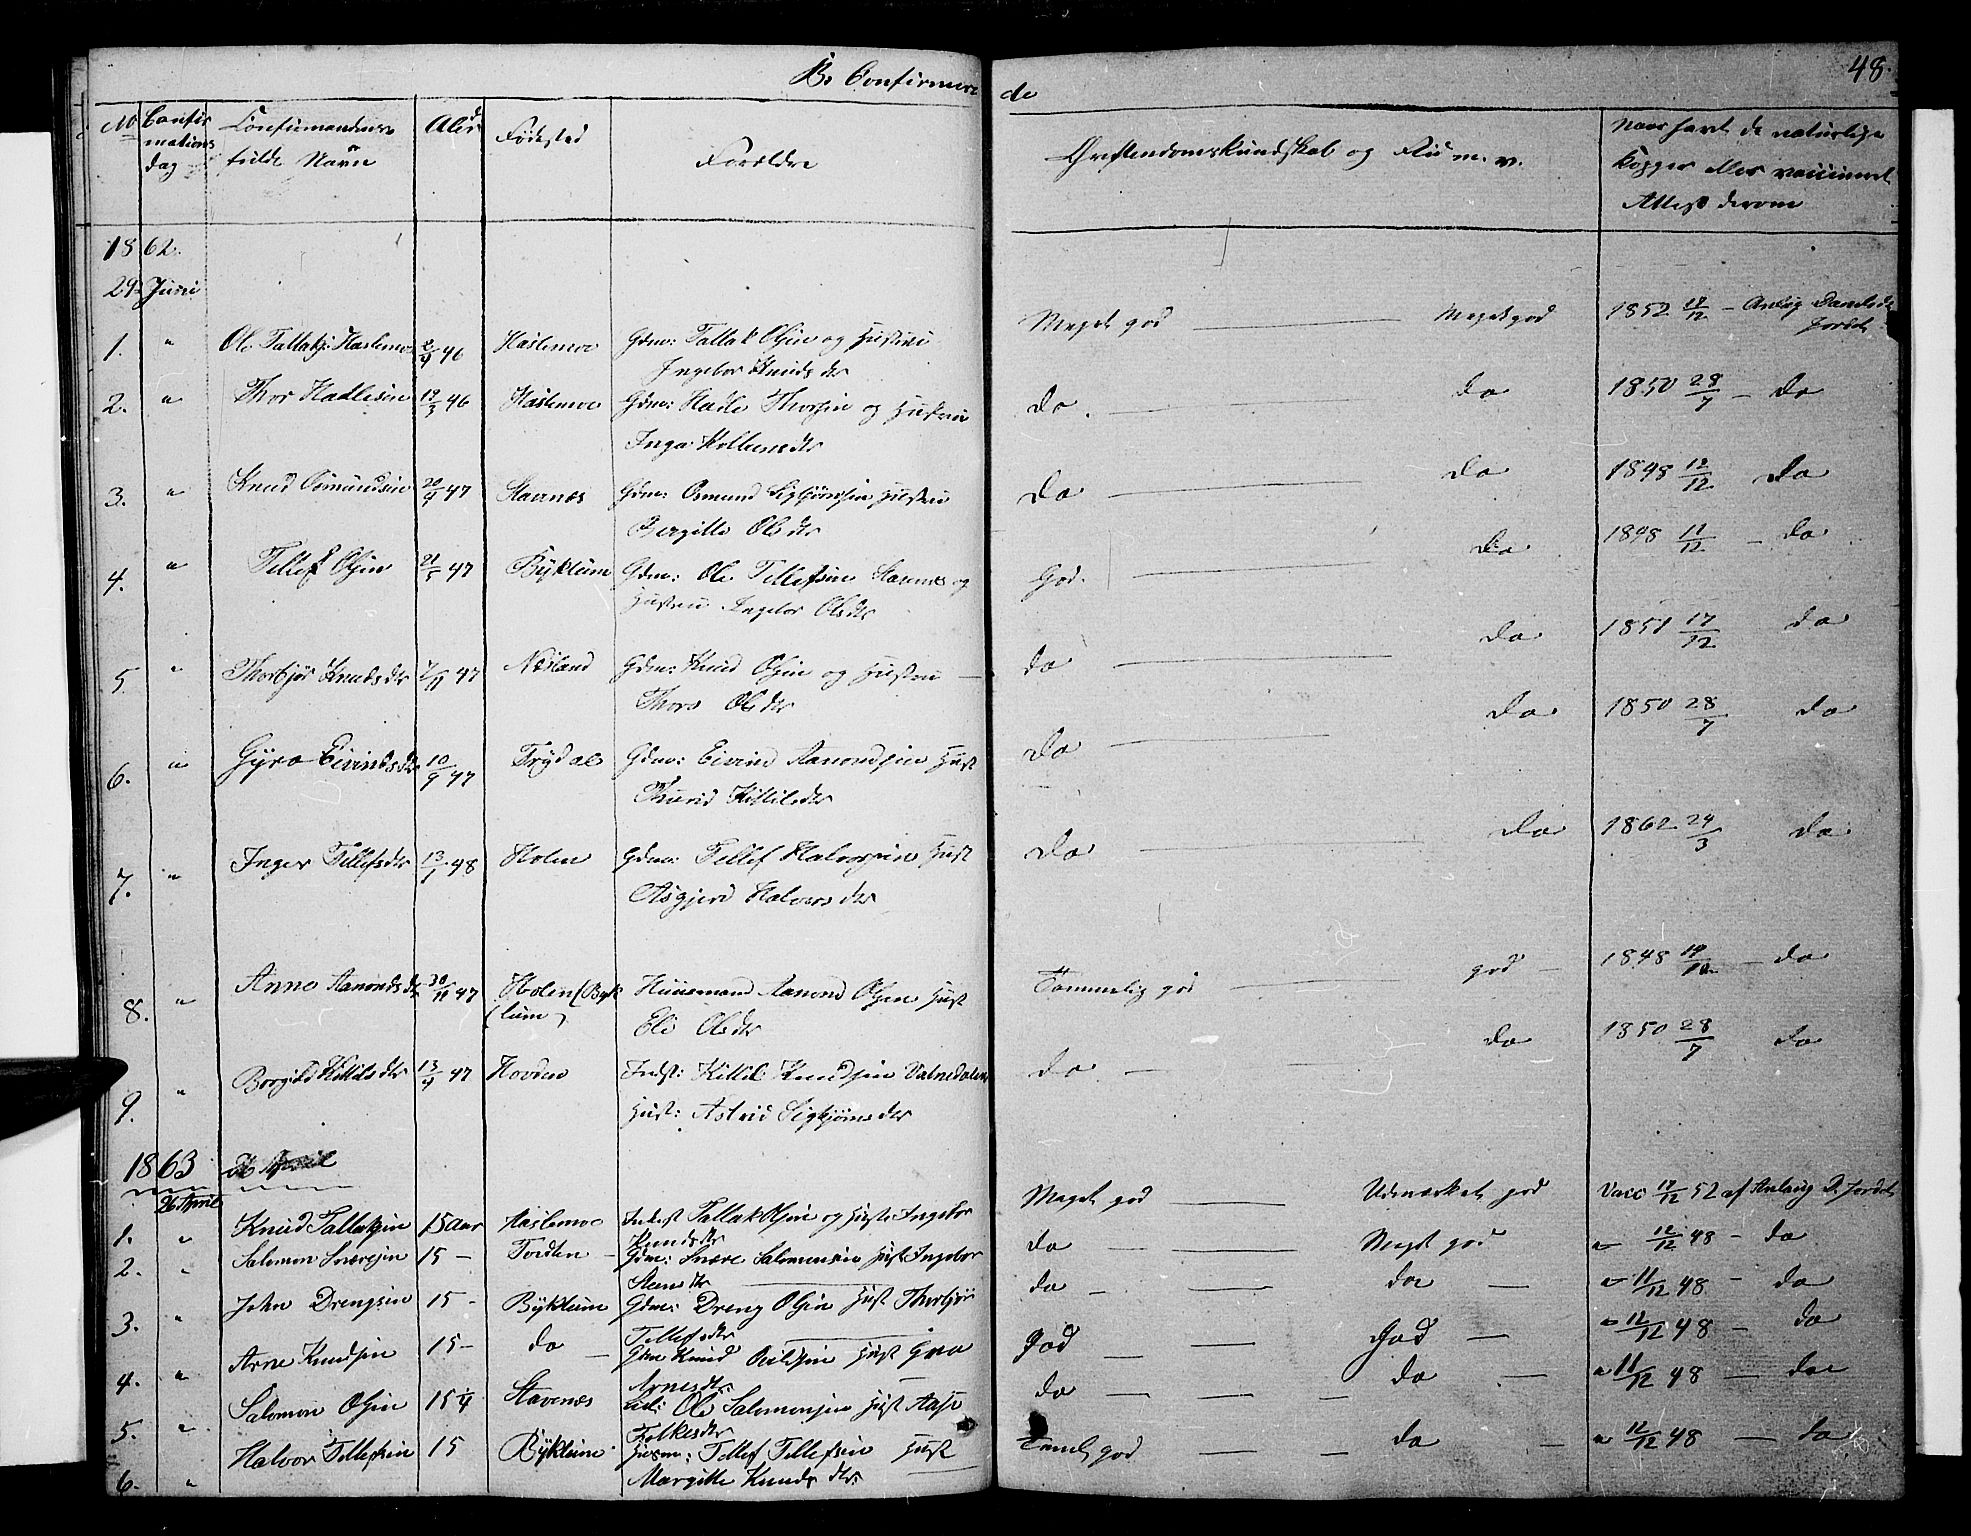 B. Confirmere
de
48.
No Confirmations dag
Confirmandens fulde Navn
Alder
Fødested
Forældre
Christendomskundskab og Flid m. v.
Naar havt de naturlige Kopper eller vaccineret Attest derom
1862.
29 Juni
1. " Ole Tallaks: Haslemo 2/4 46 Haslemoe Gdm: Tallak Olsen og Hustru
Ingebor Knudsdtr
Meget god Meget god 1852 17/12 - Anlog Danelsdr Jordet
2. " Thor Hadlesen 19/3 46 Haslemoe Gdm: Hadle Thorsen og Hustru
Inga dtr
do. do 1850 28/7 - do
3. " Knud Osmundsen 20/4 47 Stavenæs Gdm: Osmund Sigbjørnsen Hustru
Bergitte Olsdtr
do do 1848 12/12 do
4. " Tellef Olsen 21/5 47 Byklum Gdm: Ole Tellefsen Stavenes og
Hustru Ingebor Olsdtr
God. do 1848 11/12 - do
5 " Thorbjør Knudsdtr 7/11 47 Næsland Gdm: Knud Olsen og Hustru
Thora Olsdtr
do do 1851 17/12 do
6. " Gyro Eivindsdtr 10/9 47 Trydal Gdm: Eivind Aanondsen Hust
Thurid Kittilsdtr
do do 1850 28/7 do
7. " Inger Tellefsdtr 13/1 48 Holen Gdm: Tellef Halvorsen Hust
Asgjerd Halvorsdtr
do do 1862 24/3 do
8. " Anne Aanondsdtr 30/11 47 Holen (Byk
(lum)
Huusmand Aanond Olsen Hust
Eli Olsdtr
Temmelig god god - 1848 - do
9. " Borgild Kittilsdtr 13/4 47 Hovden Indst: Kittil Knudsen Vatnedalen
Hust: Astrid Sigbjørnsdtr
do do 1850 28/7 do
1863 26 April
26 April
1. " Knud Tallaksen 15 Aar Haslemoe Indest Tallak Olsen og Hust: Ingebor
Knudsdtr
Meget god Udmærket god Vacc 17/12 52 af Anlaug D. Jordet
2. " Salomon Snaresen 15 - Torden - Gdm: Snare Salomonsen Hust Ingebor
dtr
do Meget god " 12/12 48 - do
3. " John Drengsen 15 - Byklum Gdm: Dreng Olsen Hust Thorbjør
Tellefsdtr
do - do - " 11/12 48 - do
4. " Arne Knudsen 15 - do - Gdm Knud Hust Gro
Arnesdtr
God God - " 12/12 48 - do
5. " Salomon Olsen 15 1/4 Stavenæs Ole Salomonsen Hust Aase
Folkesdtr
do do " 11/12 48 - do
6. " Halvor Tellefsen 15 Byklum Husm: Tellef Tellefsen Hust
Margitte Knudsdtr
god do - " 12/12 48 - do